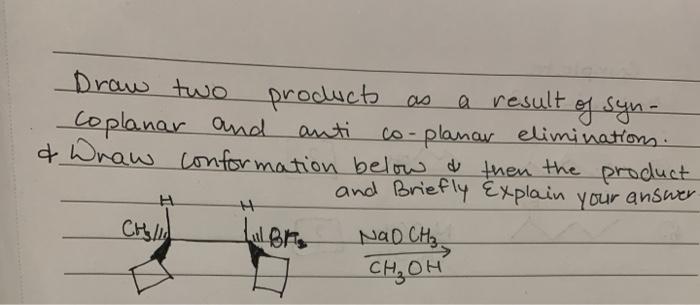 Draw two products as a result of syn-
coplanar and anti co-planar elimination.
& Draw conformation below & then the product
and Briefly Explain your answer
H H
CH3 NaOCH3
CH3OH